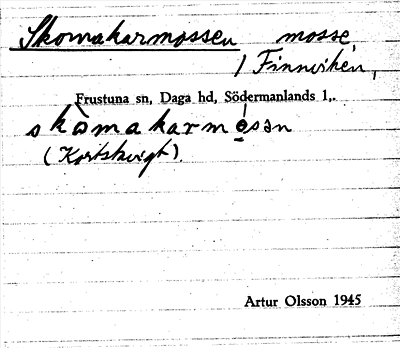 Skomakarmossen mosse
/ Finnviken,
Frustuna sn, Daga hd, Södermanlands l,.
skòmakarmósən
(Kortskrigt).
Artur Olsson 1945